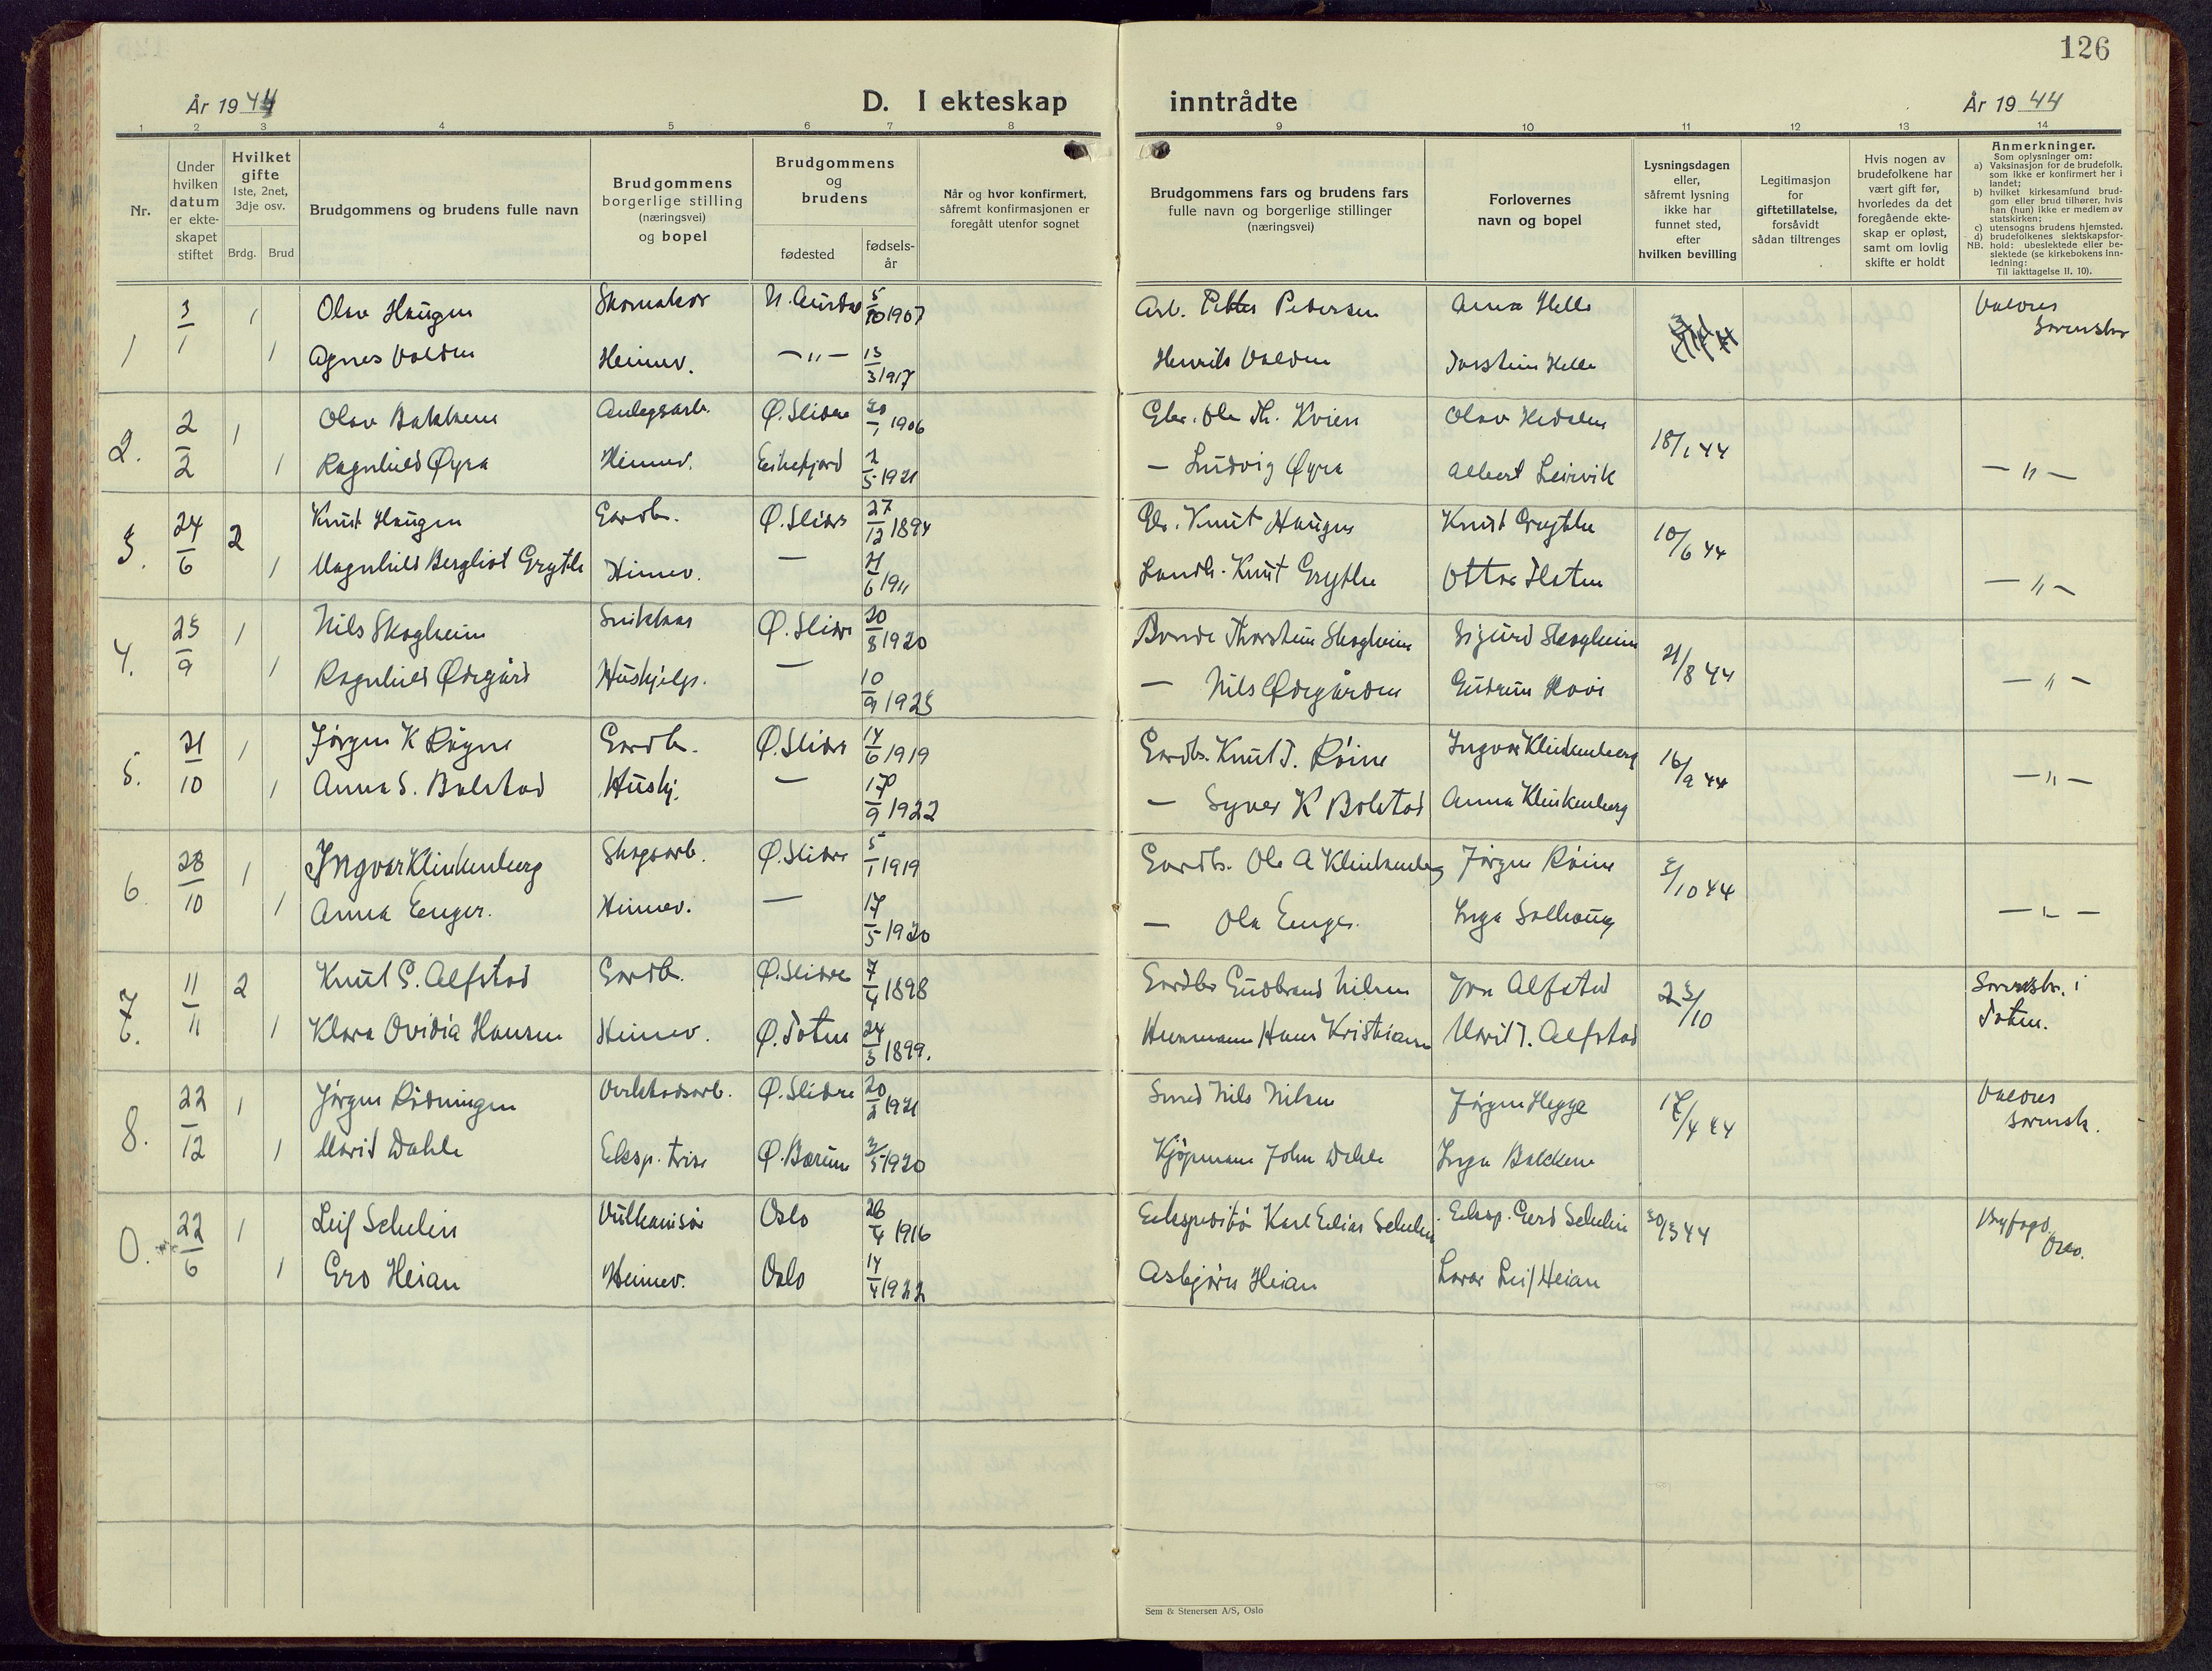 126
År 1944 D. I ekteskap inntrådte År 1944
1 2 3 4 5 6 7 8 9 10 11 12 13 14
Nr.
Under hvilken datum er ekteskapet stiftet
Hvilket gifte 1ste, 2net, 3dje osv.
Brdg. Brud
Brudgommens og brudens fulle navn
Brudgommens borgerlige stilling (næringsvei) og bopel
Brudgommens og brudens
fødested fødsels-år
Når og hvor konfirmert, såfremt konfirmasjonen er foregått utenfor sognet
Brudgommens fars og brudens fars fulle navn og borgerlige stillinger (næringsvei)
Forlovernes navn og bopel
Lysningsdagen eller, såfremt lysning ikke har funnet sted, efter hvilken bevilling
Legitimasjon for giftetillatelse, forsåvidt sådan tiltrenges
Hvis nogen av brudefolkene har vært gift før, hvorledes da det foregående ekteskap er opløst, samt om lovlig skifte er holdt
Anmerkninger.
Som oplysninger om:
a) Vaksinasjon for de brudefolk. som ikke er konfirmert her i landet;
b) hvilket kirkesamfund brudgom eller brud tilhører, hvis han (hun) ikke er medlem av statskirken;
c) utensogns brudens hjemsted.
d) brudefolkenes slektskapsforhold: ubeslektede eller beslektede (se kirkebokens innledning:
NB. Til iakttagelse II. 10).
1 3/1 1 Olav Haugen Skomaker N. Aurdal 5/10 1907 Arb. Petter Pedersen Anna Helle Valdres Sorenskr
1 Agnes Volden Heimev. —"— 13/3 1917 Henrik Volden Torstein Helle
2. 2/2 1 Olav Bakkene Anlegsarb. Ø. Slidre 20/1 1906 Gbr. Ole Th. Kvien Olav Hedalen 18/1 44
1 Ragnhild Øyra Heimev. Eikefjord 1/5 1921 — Ludvig Øyra Albert Leirvik —"—
3. 24/6 2 Knut Haugen Gardbr. Ø. Slidre 27/12 1894 Gbr. Knut Haugen Knut Grythe 10/6 44
1 Magnhild Bergliot Grythe Heimev. — 21/6 1911 Landh. Knut Grythe Ottar Floten —"—
4. 23/9 1 Nils Skogheim Snikkar Ø. Slidre 20/8 1920 Bonde Thorstein Skogheim Sigurd Skogheim 21/8 44
1 Ragnhild Ødegård Hushjelp. — 10/9 1925 — Nils Ødegården Gudrun Hovi —"—
5. 21/10 1 Jörgen K Rögne Gardbr. Ø. Slidre 14/6 1919 Gardbr. Knut J. Röine Ingvar Klinkenberg 16/9 44
1 Anna S. Bolstad Hushj. — 17/9 1922 — Syver K Bolstad Anna Klinkenberg —"—
6 28/10 1 Ingvar Klinkenberg Skogsarb. Ø. Slidre 5/1 1919 Gardbr. Ole A Klinkenberg Jörgen Röine 3/10 44
1 Anna Enger. Heimev. — 17/5 1920 — Ola Enger. Inga Solhaug —"—
7. 11/11 2 Knut G. Alfstad Gardbr. Ø. Slidre 7/4 1898 Gardbr Gudbrand Nilsen Jon Alfstad 23/10 Sorenskr. i
1 Klara Ovidia Hansen Heimev. Ø. Toten 24/3 1899. Husmann Hans Kristiansen Marit J. Alfstad Toten.
8. 22/12 1 Jörgen Rödningen Verkstadsarb. Ø. Slidre 20/2 1921 Smed Nils Nilsen Jörgen Hegge 17/4 44 Valdres
1 Marit Dahle Eksp. trise Ø. Bærum 3/5 1920 Kjöpmann John Dahle Inga Bakkene sorensk.
0. 22/6 1 Leif Schulin Vulkanisör Oslo 26/4 1916 Ekspeditör Karl Edias Schulin Eksp. Gerd Schulin 30/3 44 Byfogd.
1 Gro Heian Heimev. Oslo 14/4 1922 Asbjörn Heian Lærar Leif Heian Oslo.
Sem & Stenersen A/S, Oslo